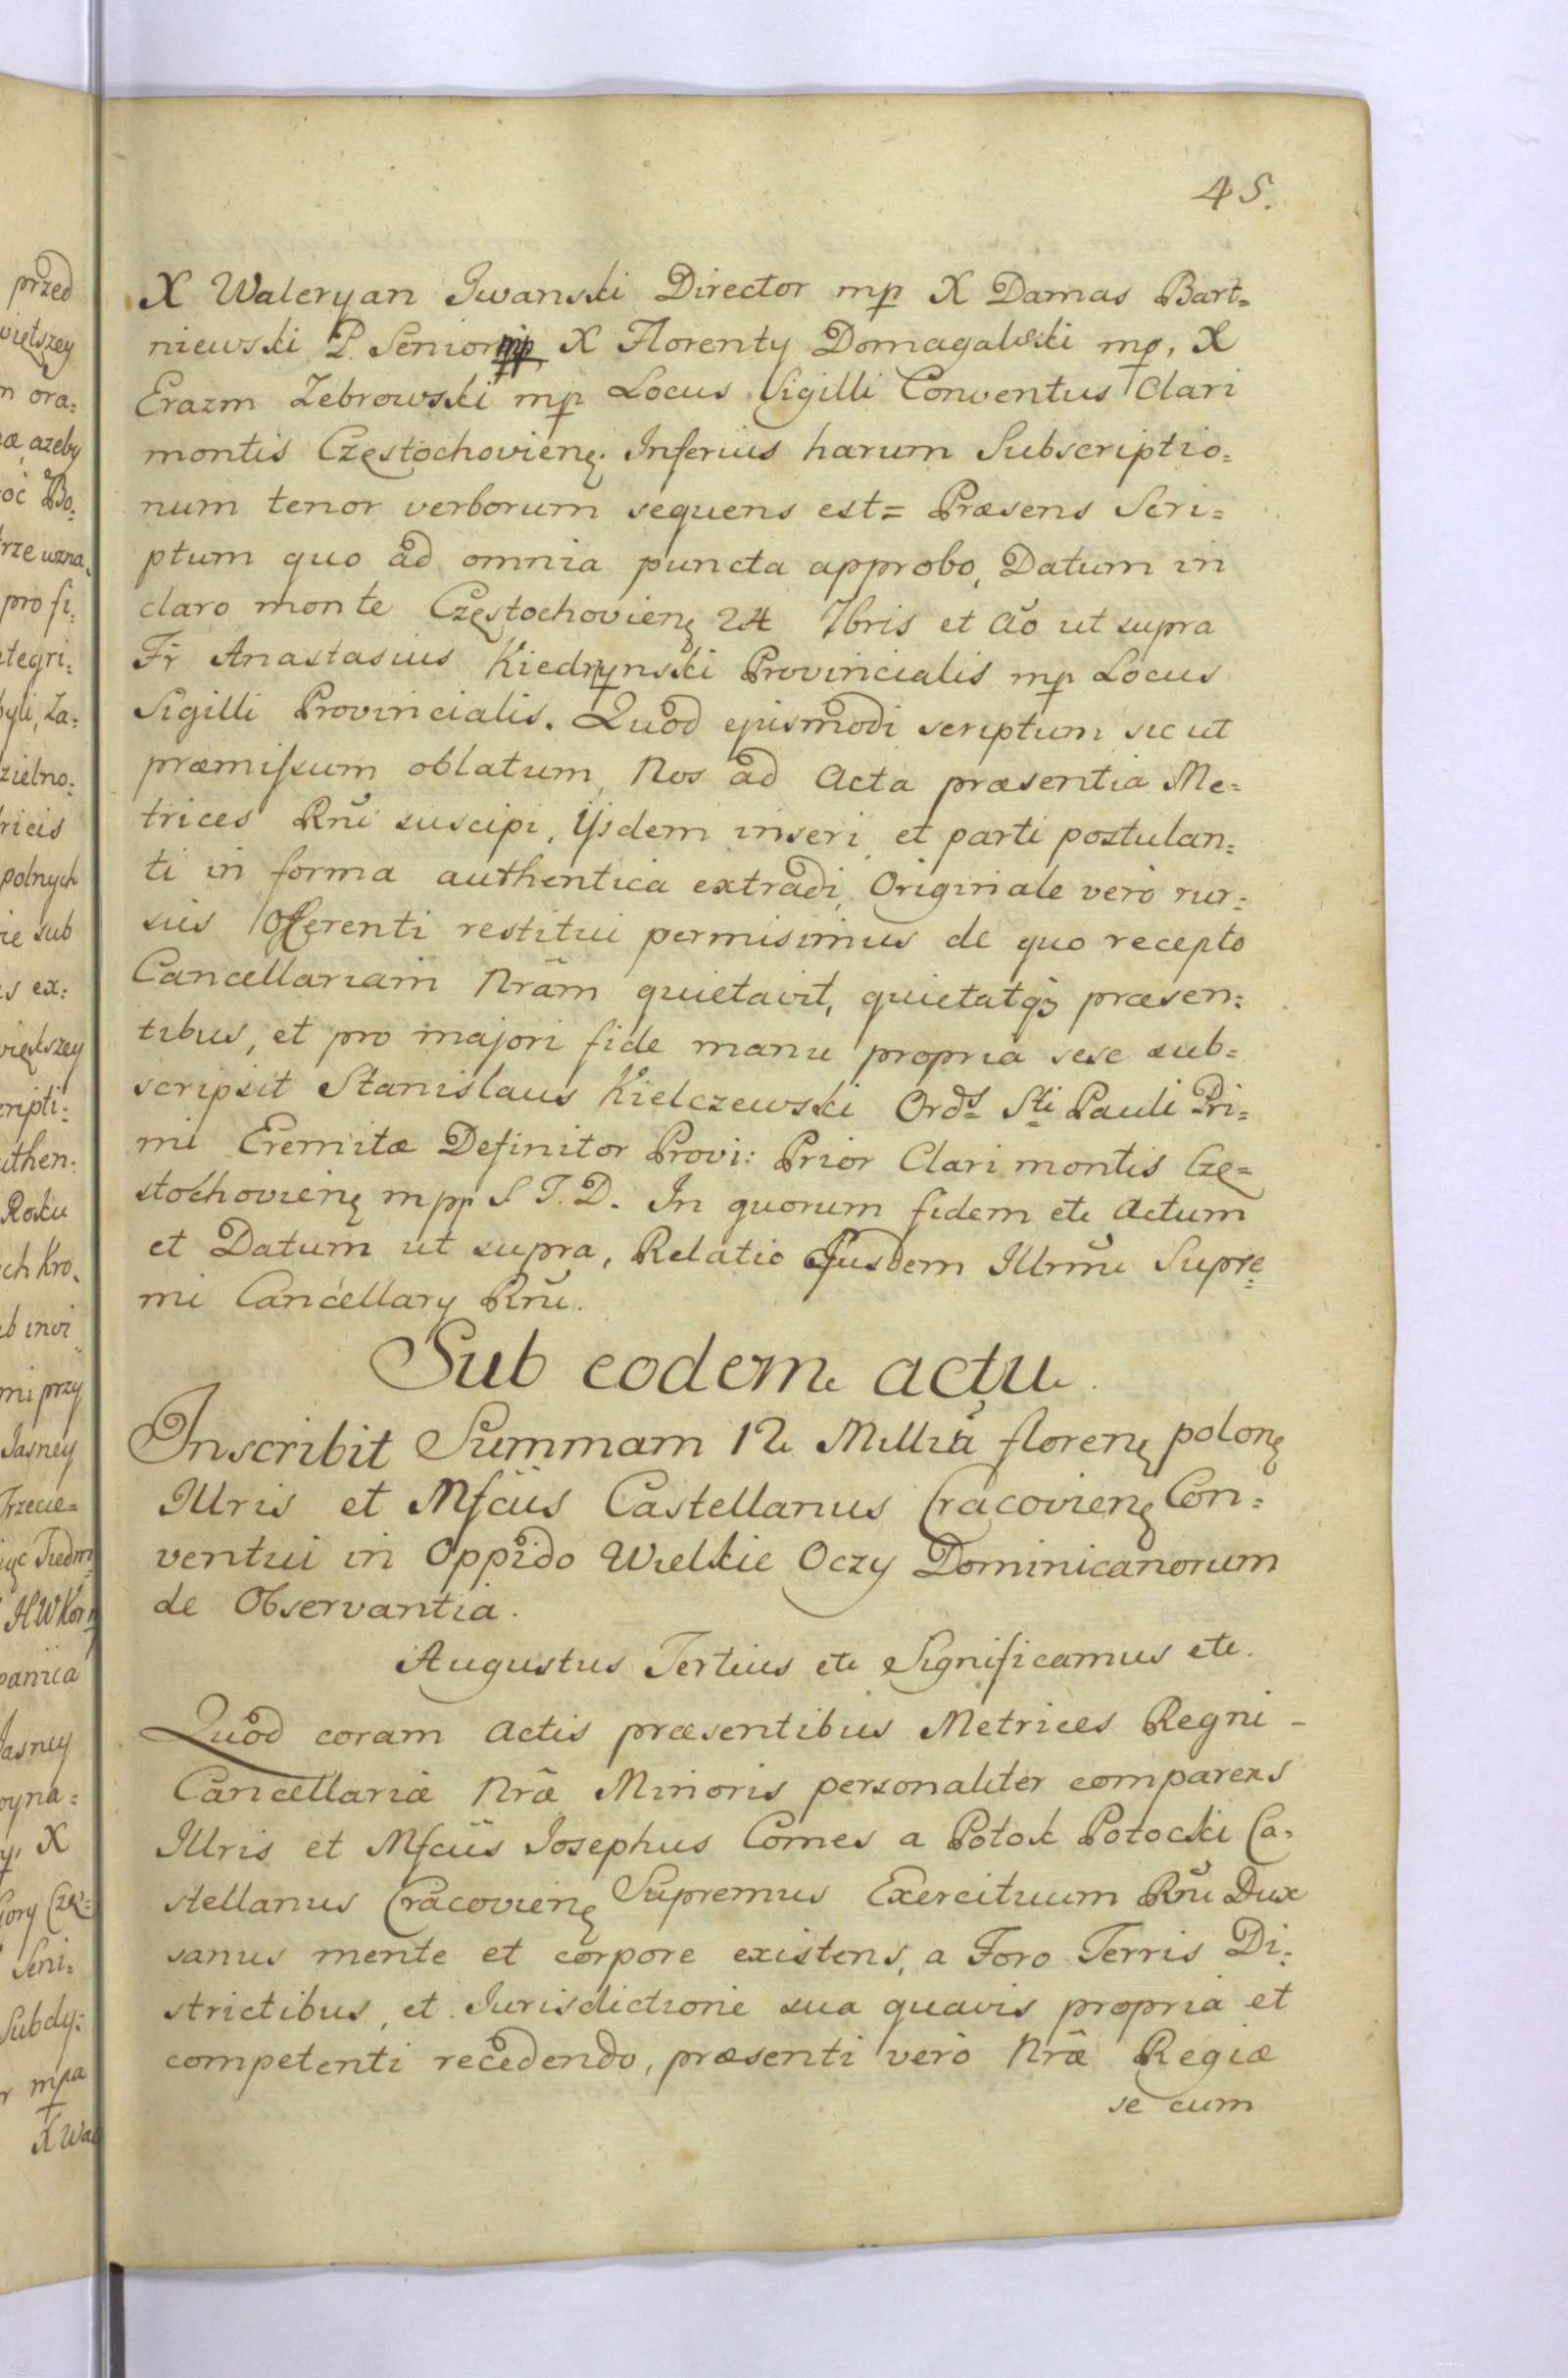 45.
X Waleryan Iwanski Director mp X Damas Bart=
niewski P. Senior mp X Florenty Domagalski mp, X
Erazm Zebrowski mp Locus Sigilli Conventus Clari
montis Częstochovienę. Inferius harum Subscriptio=
num tenor verborum sequens est= Præsens Scri=
ptum quo ad omnia puncta approbo, Datum in
claro monte Częstochovienę 24 7bris et Aõ ut supra
Fr Anastasius Kiedrzynski Provincialis mp Locus
Sigilli Provincialis. Quod ejusmodi scriptum sic ut
præmissum oblatum, Nos ad Acta præsentia Me=
trices Rñi suscipi, Ijsdem inseri, et parti postulan=
ti in forma authentica extradi, Originale vero rur=
sus Offerenti restitui permisimus de quo recepto
Cancellariam Nrãm quietavit, quietatq3 præsen=
tibus, et pro majori fide manu propria sese sub=
scripsit Stanislaus Kielczewski Ords Sti Pauli Pri=
mi Eremitæ Definitor Provi: Prior Clari montis Czę=
stochovienę mpp S T. D. In quorum fidem etc Actum
et Datum ut supra, Relatio Ejusdem Illrmi Supre=
mi Cancellary Rñi.
Sub eodem actu
Inscribit Summam 12 Millia florenę polonę
Illris et Mfcus Castellanus Cracovienę Con=
ventui in Oppido Wielkie Oczy Dominicanorum
de Observantia.
Augustus Tertius etc Significamus etc.
Quod coram Actis præsentibus Metrices Regni -
Cancellariæ Nræ Minoris personaliter comparens
Illris et Mfcus Iosephus Comes a Potok Potocki Ca=
stellanus Cracovienę Supremus Exercituum Rñi Dux
sanus mente et corpore existens, a Foro Terris Di=
strictibus, et Iurisdictione sua quavis propria et
competenti recedendo, præsenti verò Nræ Regiæ
se cum